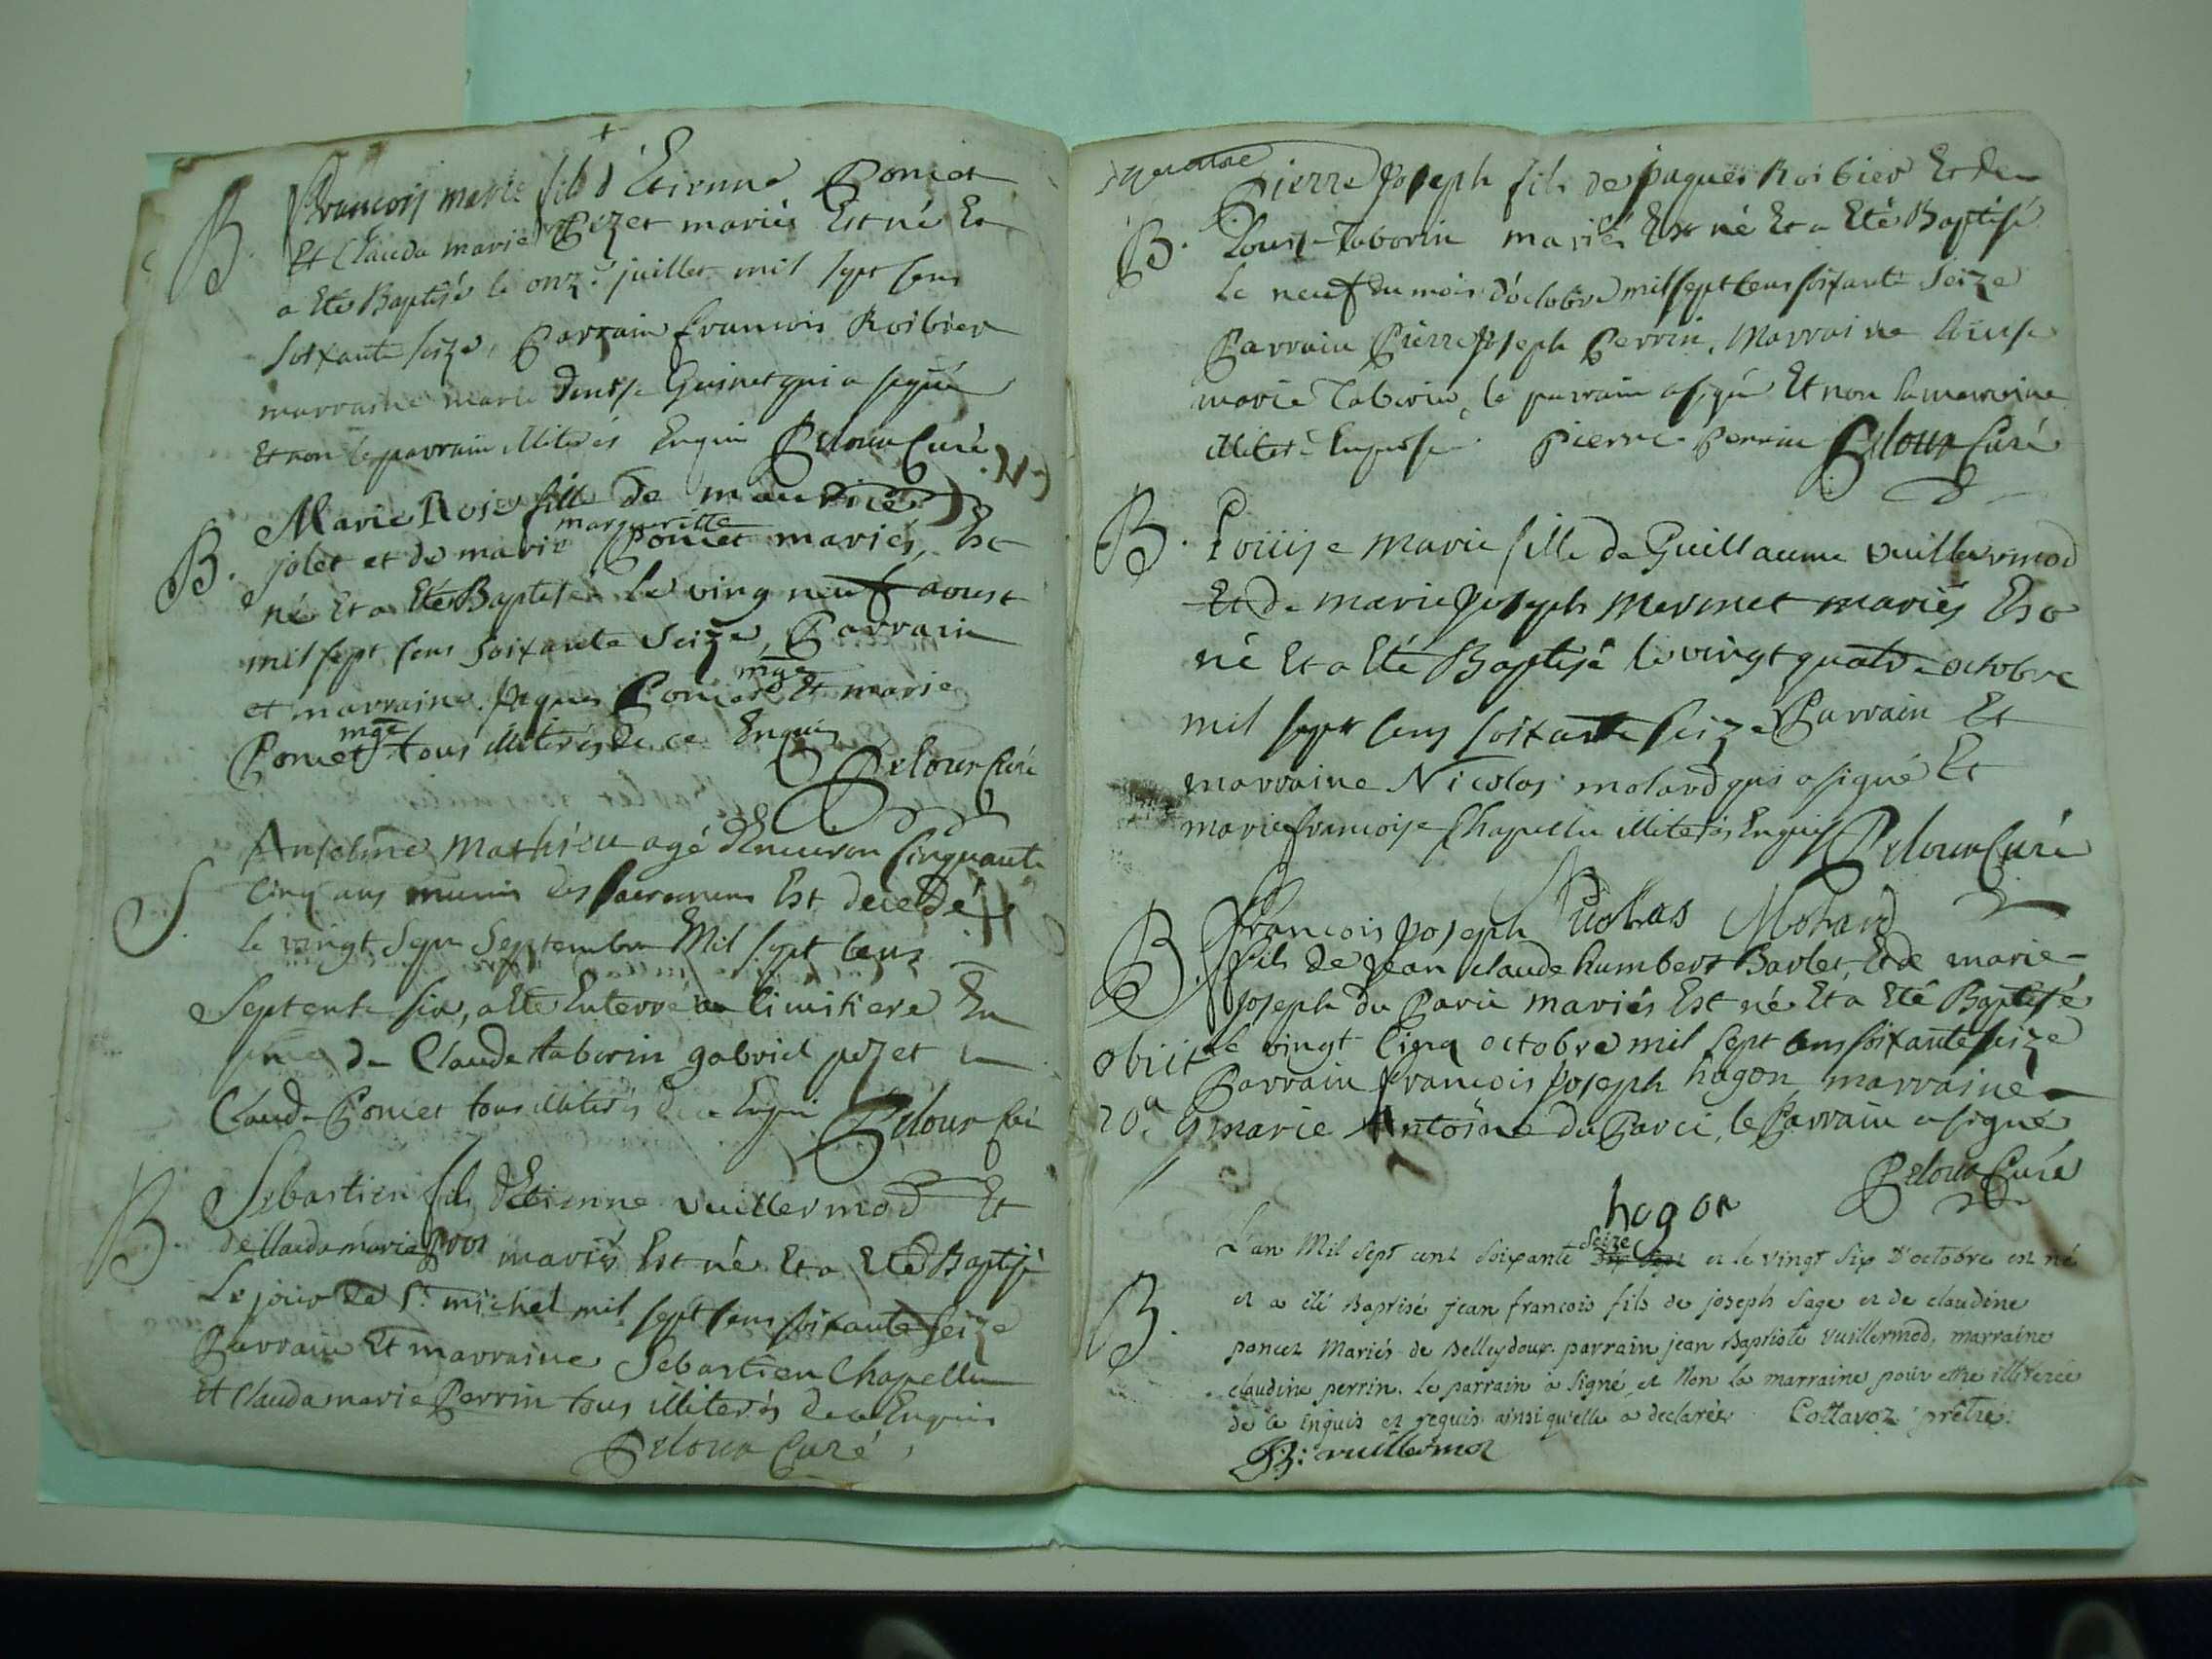 B. François marie fils d'Etienne Poncet
Et Clauda marie Pezet mariés Est né Et
a Eté Baptisé le onze juillet mil sept cens
soixante seize, Parrain francois Roibier
marraine marie Guinet qui a signé
Et non le parrain illiterés Enquis Peloux Curé
B. Marie Rose fille de maurice
jolet et de marie margueritte Poncet mariés, Est
né Et a Eté Baptisée Le ving neuf aoust
mil sept cens soixante Seize, Parrain
et marraine. jaques Poncet mge Et marie
Poncet mge tous illiterés de ce Enquis
Peloux Curé
S. Anselme Mathieu agé d'Environ cinquante
cinq ans munis des sacremens Est decedé
le vingt sept Septembre Mil sept cens
Septente six, a Eté Enterré au cimitiere En
de Claude taborin gabriel pezet
Claude Poncet tous illiterés de ce Enquis Peloux Curé
B. Sebastien fils d'Etienne vuillermod Et
de Clauda marie mariés Est né Et a Eté Baptisé
Le jour de St. michel mil sept cens soixante seize
Parrain Et marraine Sebastien Chapellu
Et Clauda marie Perrin tous illiterés de ce Enquis
Peloux Curé
quatre
Pierre joseph fils de jaques Roibier Et de
B. Louise Taborin mariés Est né Et a Eté Baptisé
Le neuf du mois d'octobre mil sept cens soixante Seize
Parrain Pierre joseph Perrin, Marraine Louise
marie Taborin, le parrain a signé Et non la marraine
illiteré Enquise Pierre Perrin Peloux Curé
B. Louise Marie fille de Guillaume vuillermod
Et de marie joseph mermet mariés Est
né Et a Eté Baptisé le vingt quatre octobre
mil sept cens soixante seize Parrain Et
marraine Nicolas molard qui a signé Et
marie francoise Chapellu illiterés Enquis Peloux Curé
Nicolas Molard
B. francois joseph
fils de jean claude humbert Barlet, Et de marie
joseph du Parc mariés Est né Et a Eté Baptisé
obiit le vingt cinq octobre mil sept cens soixante seize
Parrain françois joseph hugon marraine
20a marie Antoine du Parc, le Parrain a signé
Peloux Curé
hugon
L'an Mil Sept cent Soixante Seize et le vingt Six D'octobre est né
B. et a été Baptisé jean francois fils de joseph Sage et de claudine
poncet Mariés de Belleydoux. parrain jean Baptiste Vuillermod, marraine
claudine perrin. Le parrain a Signé et Non la marraine pour etre illiterée
de ce Enquis et requis ainsi qu'elle a declarée. Collavoz prêtre.
vuillermoz